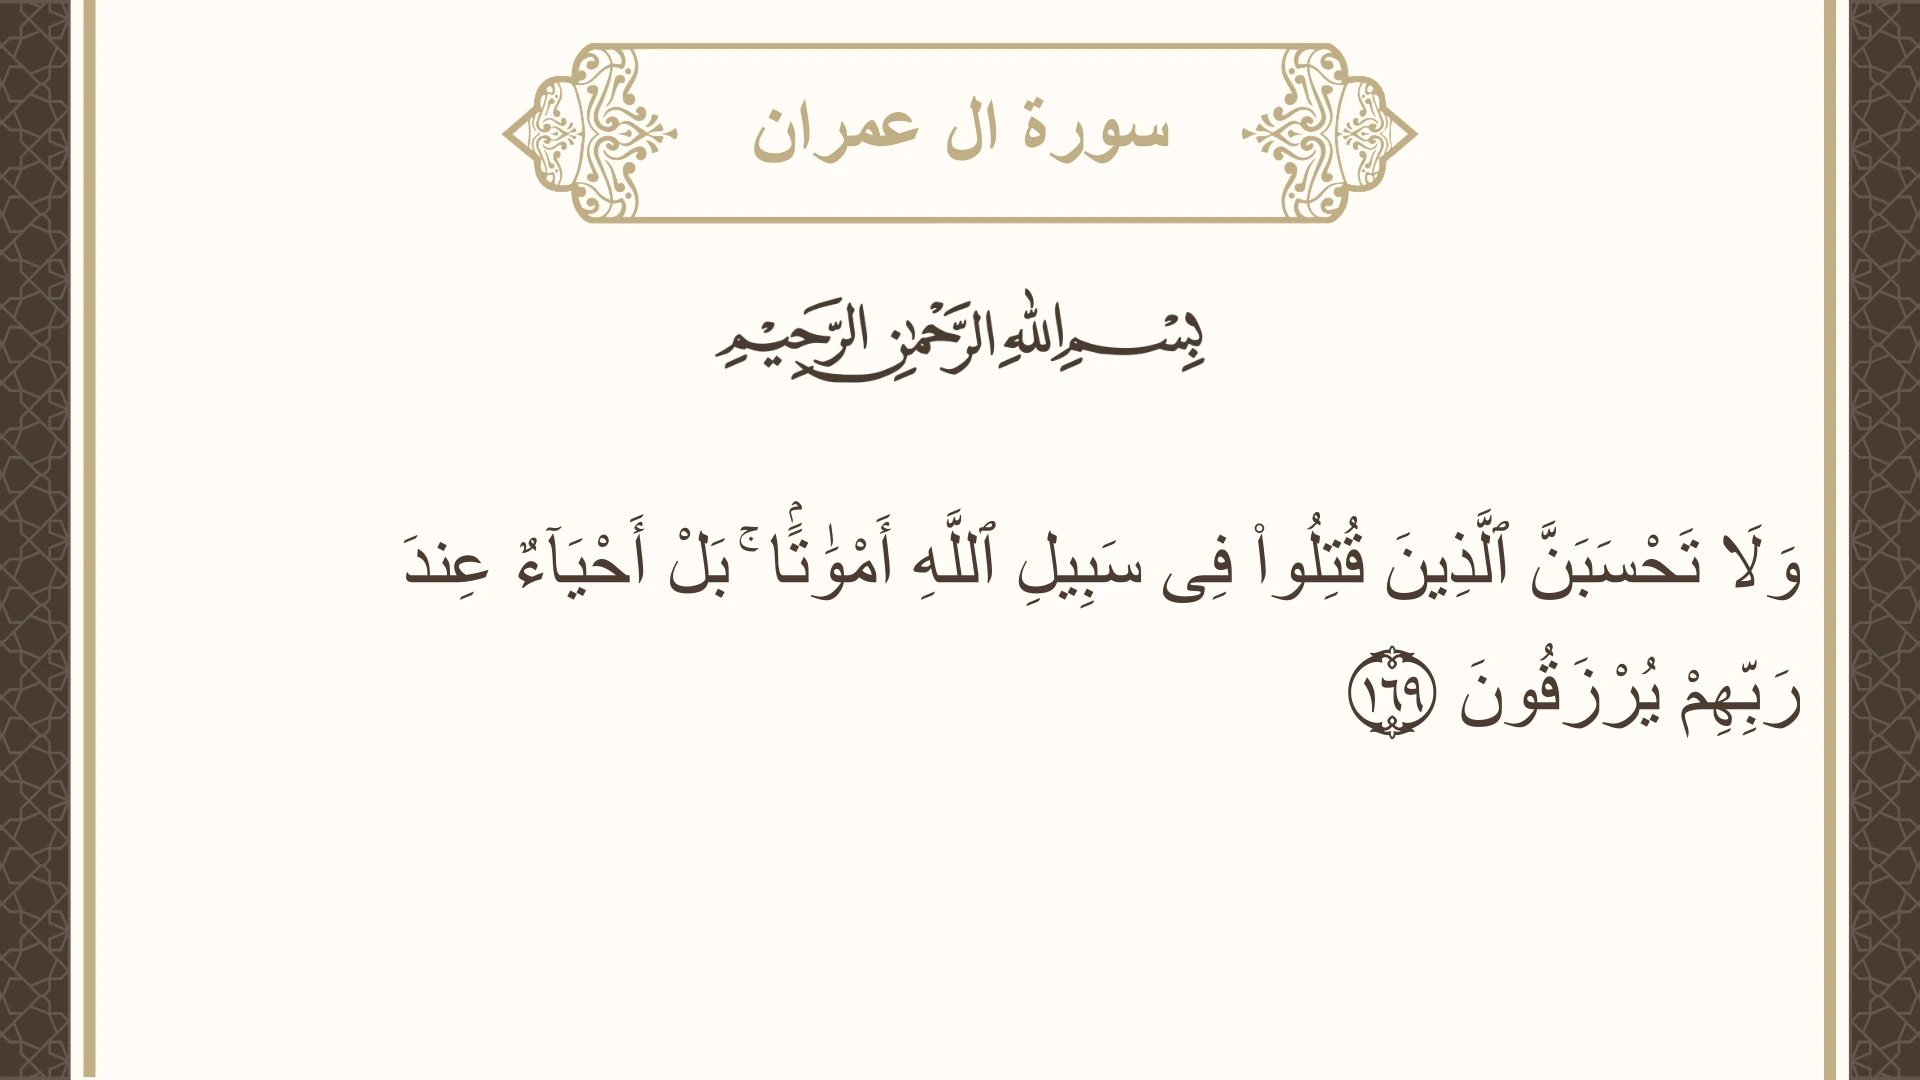 سورة ال عمران
بِسْمِ اللهِ الرَّحْمٰنِ الرَّحِيْمِ
وَلَا تَحْسَبَنَّ ٱلَّذِينَ قُتِلُوا۟ فِى سَبِيلِ ٱللَّهِ أَمْوَٰتًۢا ۚ بَلْ أَحْيَآءٌ عِندَ
رَبِّهِمْ يُرْزَقُونَ ١٦٩